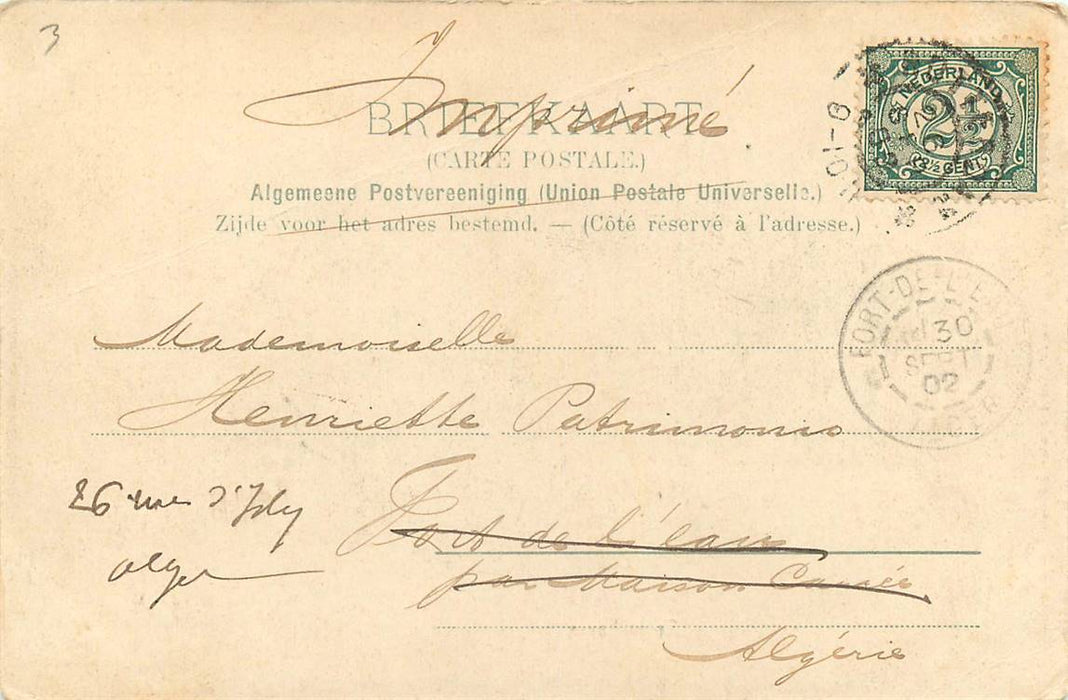 3
Imprimé
BRIEFKAART
(CARTE POSTALE.)
Algemeene Postvereeniging (Union Postale Universelle.)
Zijde voor het adres bestemd. — (Côté réservé à l'adresse.)
NEDERLAND
2½
(2½ CENT)
FORT-DE-L'EAU
30
SEPT
02
ALGER
Mademoiselle
Henriette Patrimonio
Fort de l'eau
par Maison Carrée
Algérie
26 rue d'Isly
Alger